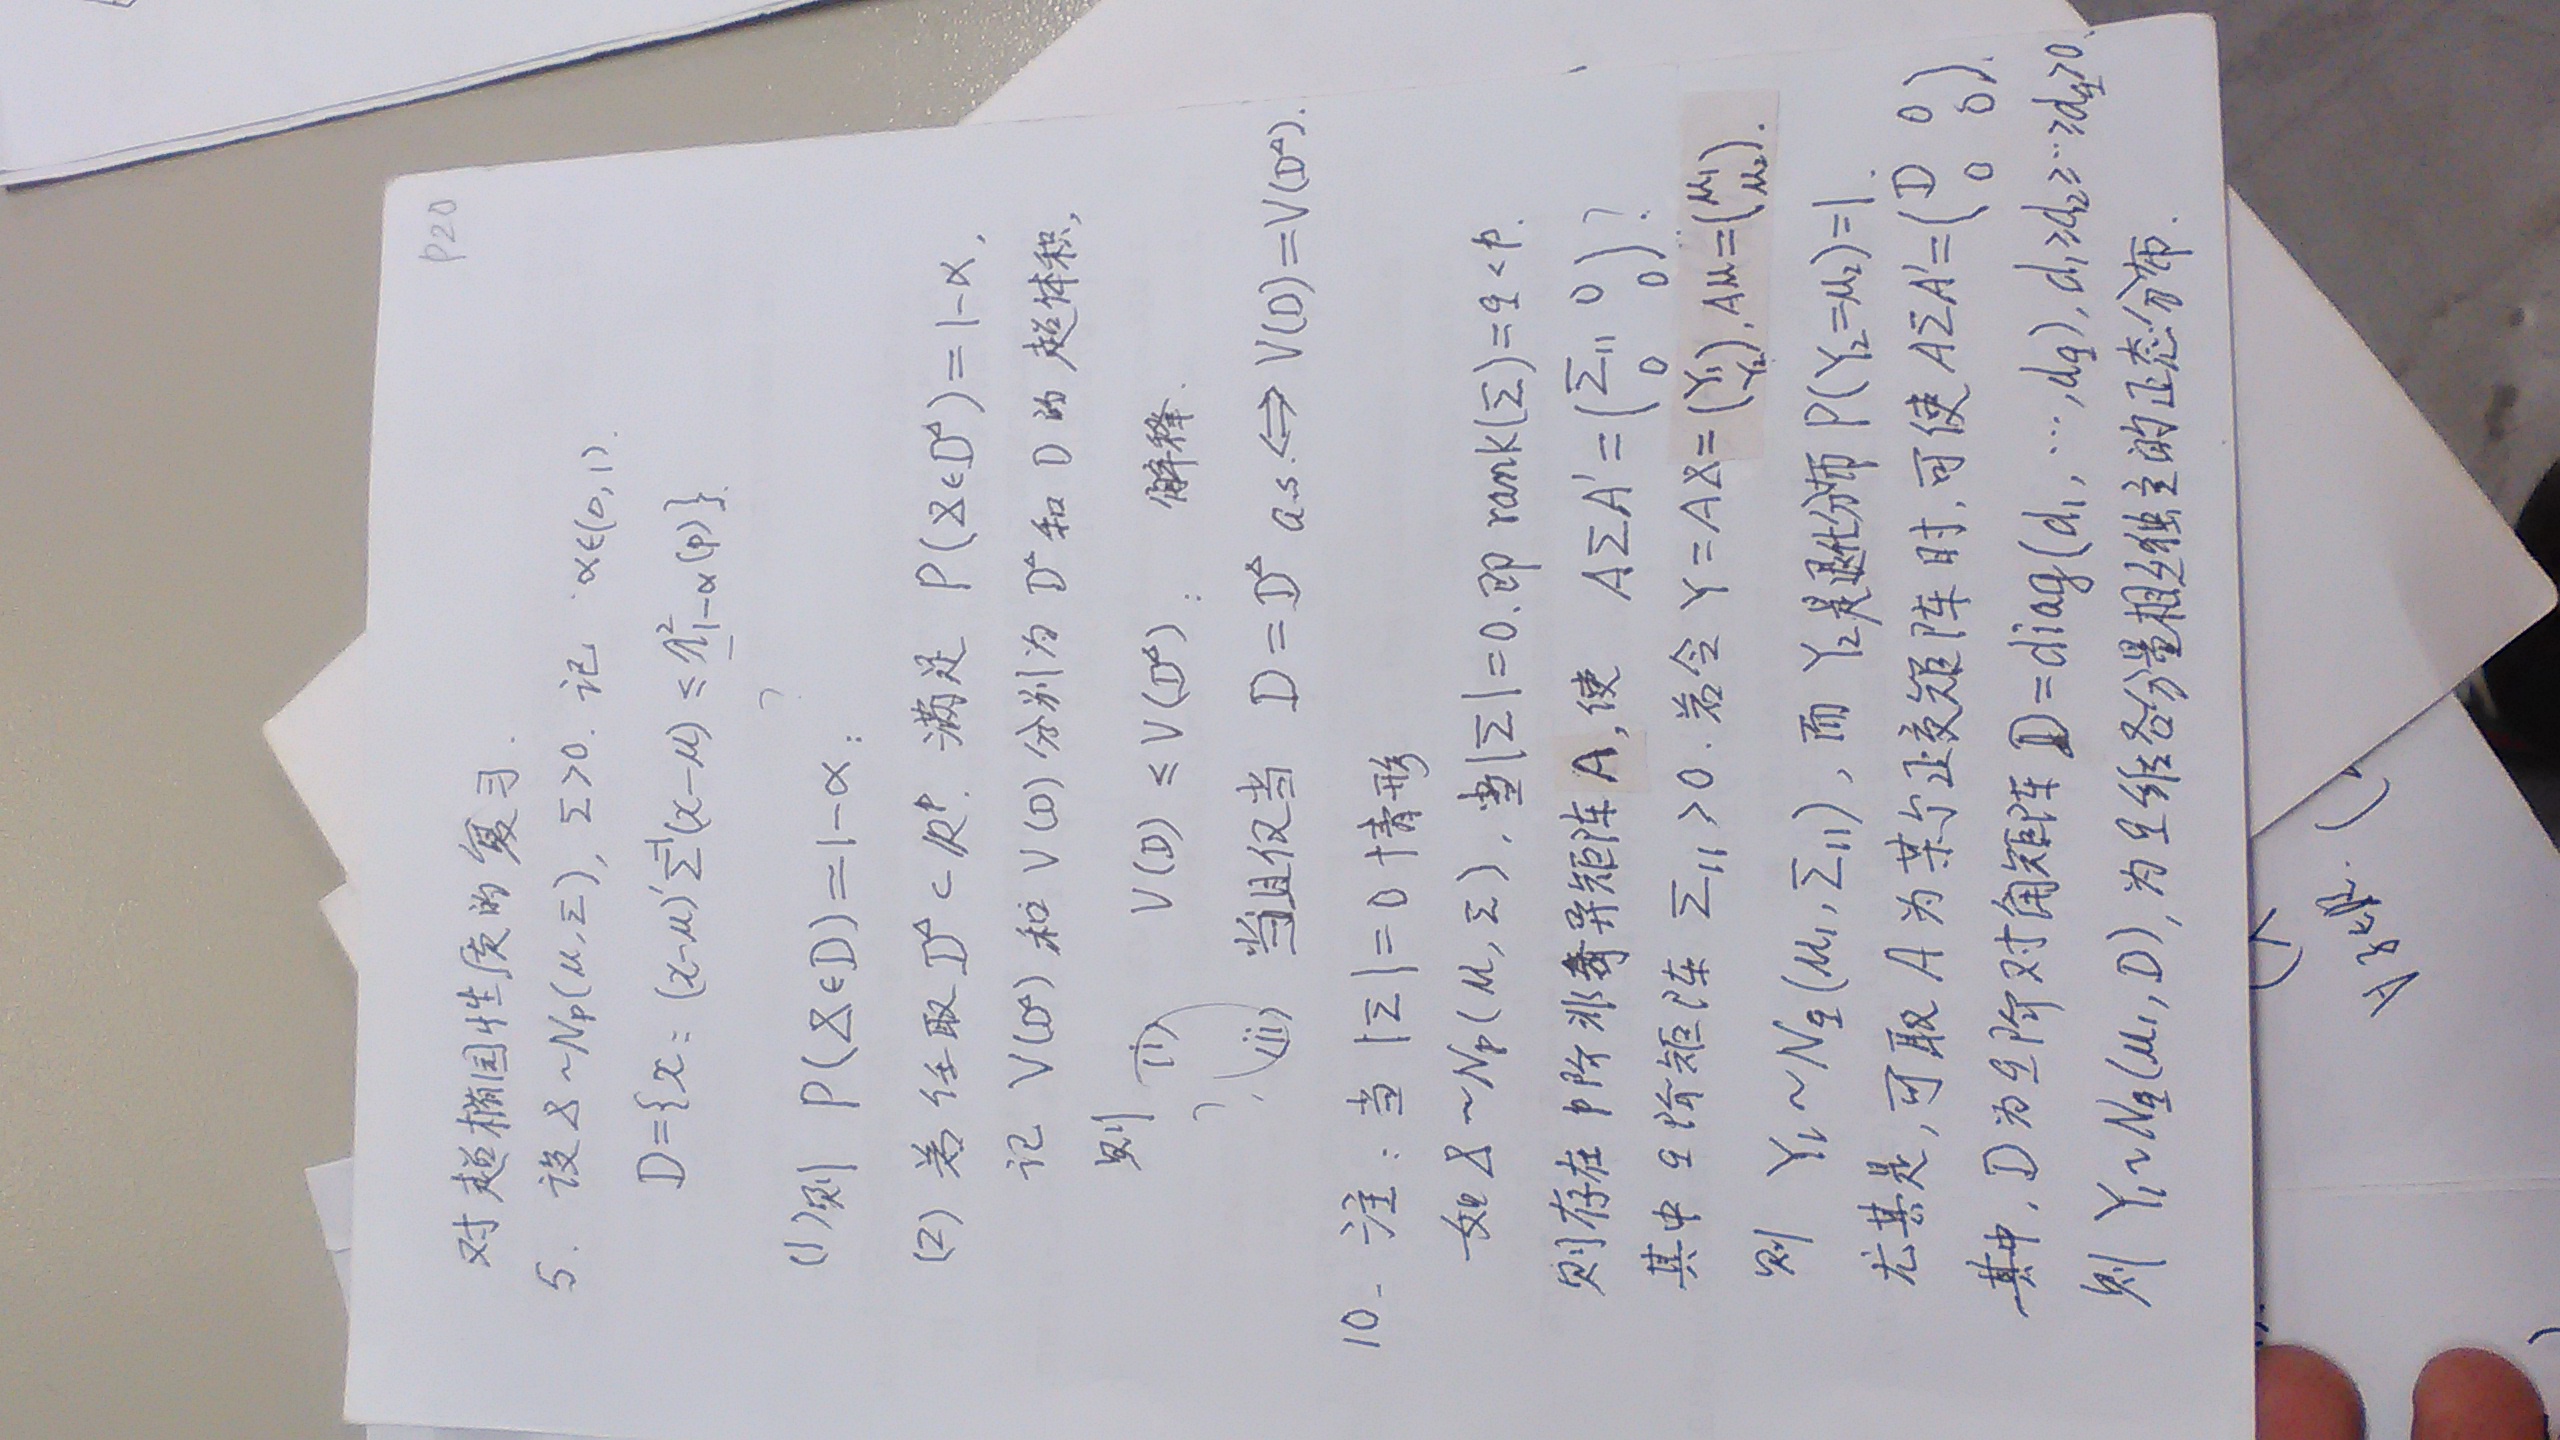 P20
对超椭圆性质的复习.
5. 设X~Np(μ,Σ), Σ>0. 记 α∈(0,1).
D={x: (x-μ)'Σ⁻¹(x-μ) ≤ χ²₁₋α(p)}.
(1)则 P(X∈D)=1-α:
(2) 若任取D*⊂Rᵖ. 满足 P(X∈D*)=1-α,
记 V(D*) 和 V(D) 分别为 D* 和 D 的超体积,
则 (i) V(D) ≤ V(D*): 解释.
(ii) 当且仅当 D=D* a.s. ⇔ V(D)=V(D*).
10. 注: 当 |Σ|=0 情形
如 X~Np(μ,Σ), 当|Σ|=0.即 rank(Σ)=q<p.
则存在 p阶非奇异矩阵A,使 AΣA'=(Σ₁₁ 0
0 0)?
其中 q阶矩阵 Σ₁₁>0. 若令 Y=AX=(Y₁
Y₂), Aμ=(μ₁
μ₂).
则 Y₁~Nq(μ₁,Σ₁₁), 而 Y₂是退化分布 P(Y₂=μ₂)=1.
尤其是,可取 A 为某个正交矩阵时,可使 AΣA'=(D 0
0 0).
其中, D为q阶对角矩阵 D=diag(d₁,…,dq), d₁≥d₂≥…≥dq>0.
则 Y₁~Nq(μ₁,D),为q维各分量相互独立的正态分布.